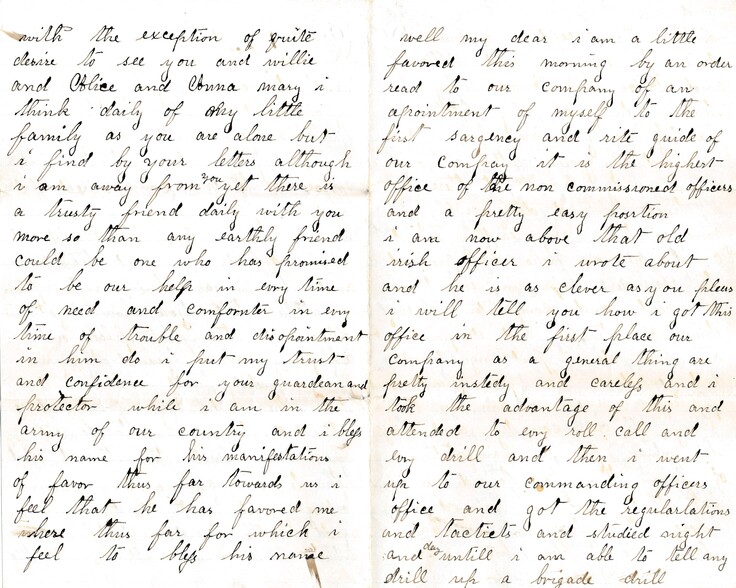 with the exception of quite
desire to see you and willie
and Alice and Anna mary i
think daily of my little
family as you are alone but
i find by your letters although
i am away from you yet there is
a trusty friend daily with you
more so than any earthly friend
could be one who has promised
to be our help in evry time
of need and comfornter in evry
time of trouble and disopointment
in him do i put my trust
and confidence for your guardean and
protector while i am in the
army of our country and i bless
his name for his manifestations
of favor thus far towards us i
feel that he has favored me
where thus far for which i
feel to bless his name
well my dear i am a little
favored this morning by an order
read to our company of an
apointment of myself to the
first sargency and rite guide of
our compay it is the highest
office of the non commissioned officers
and a pretty easy position
i am now above that old
irish officer i wrote about
and he is as clever as you pleas
i will tell you how i got this
office in the first place our
company as a general thing are
pretty instedy and careless and i
took the advantage of this and
attended to evry roll call and
evry drill and then i went
up to our commanding officers
office and got the regularlations
and tacticts and studied night
and day untill i am able to tell any
drill up a brigade drill